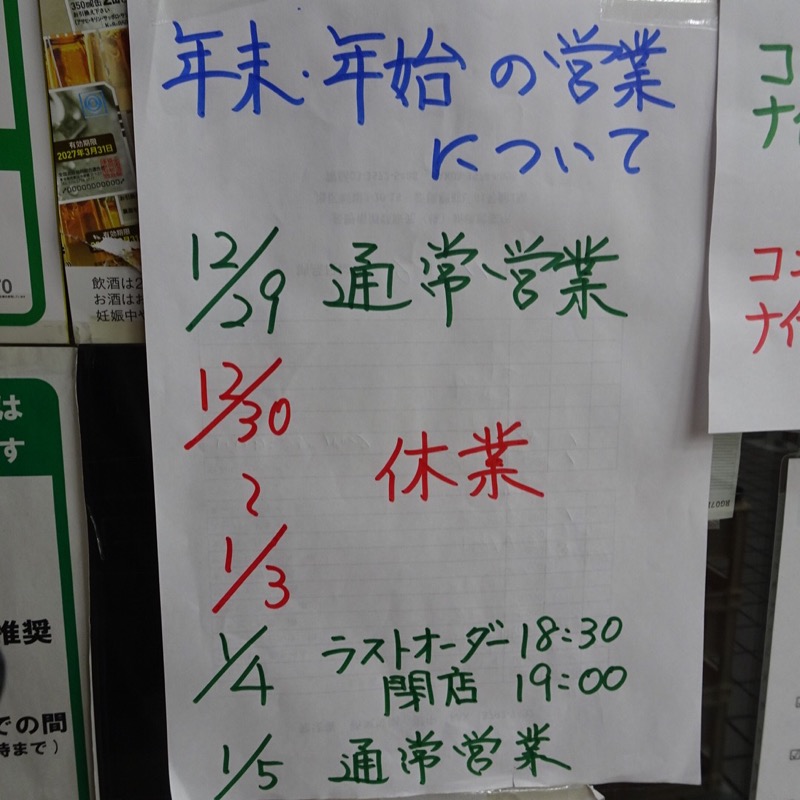 年末・年始の営業
について
12/29 通常営業
12/30
〜
1/3
休業
1/4 ラストオーダー 18:30
閉店 19:00
1/5 通常営業
有効期限
2027年3月31日
有効期限
飲酒は2
お酒はお
妊娠中や
70
は
す
推奨
での間
時まで）
コ
ナイ
コニ
ナイ